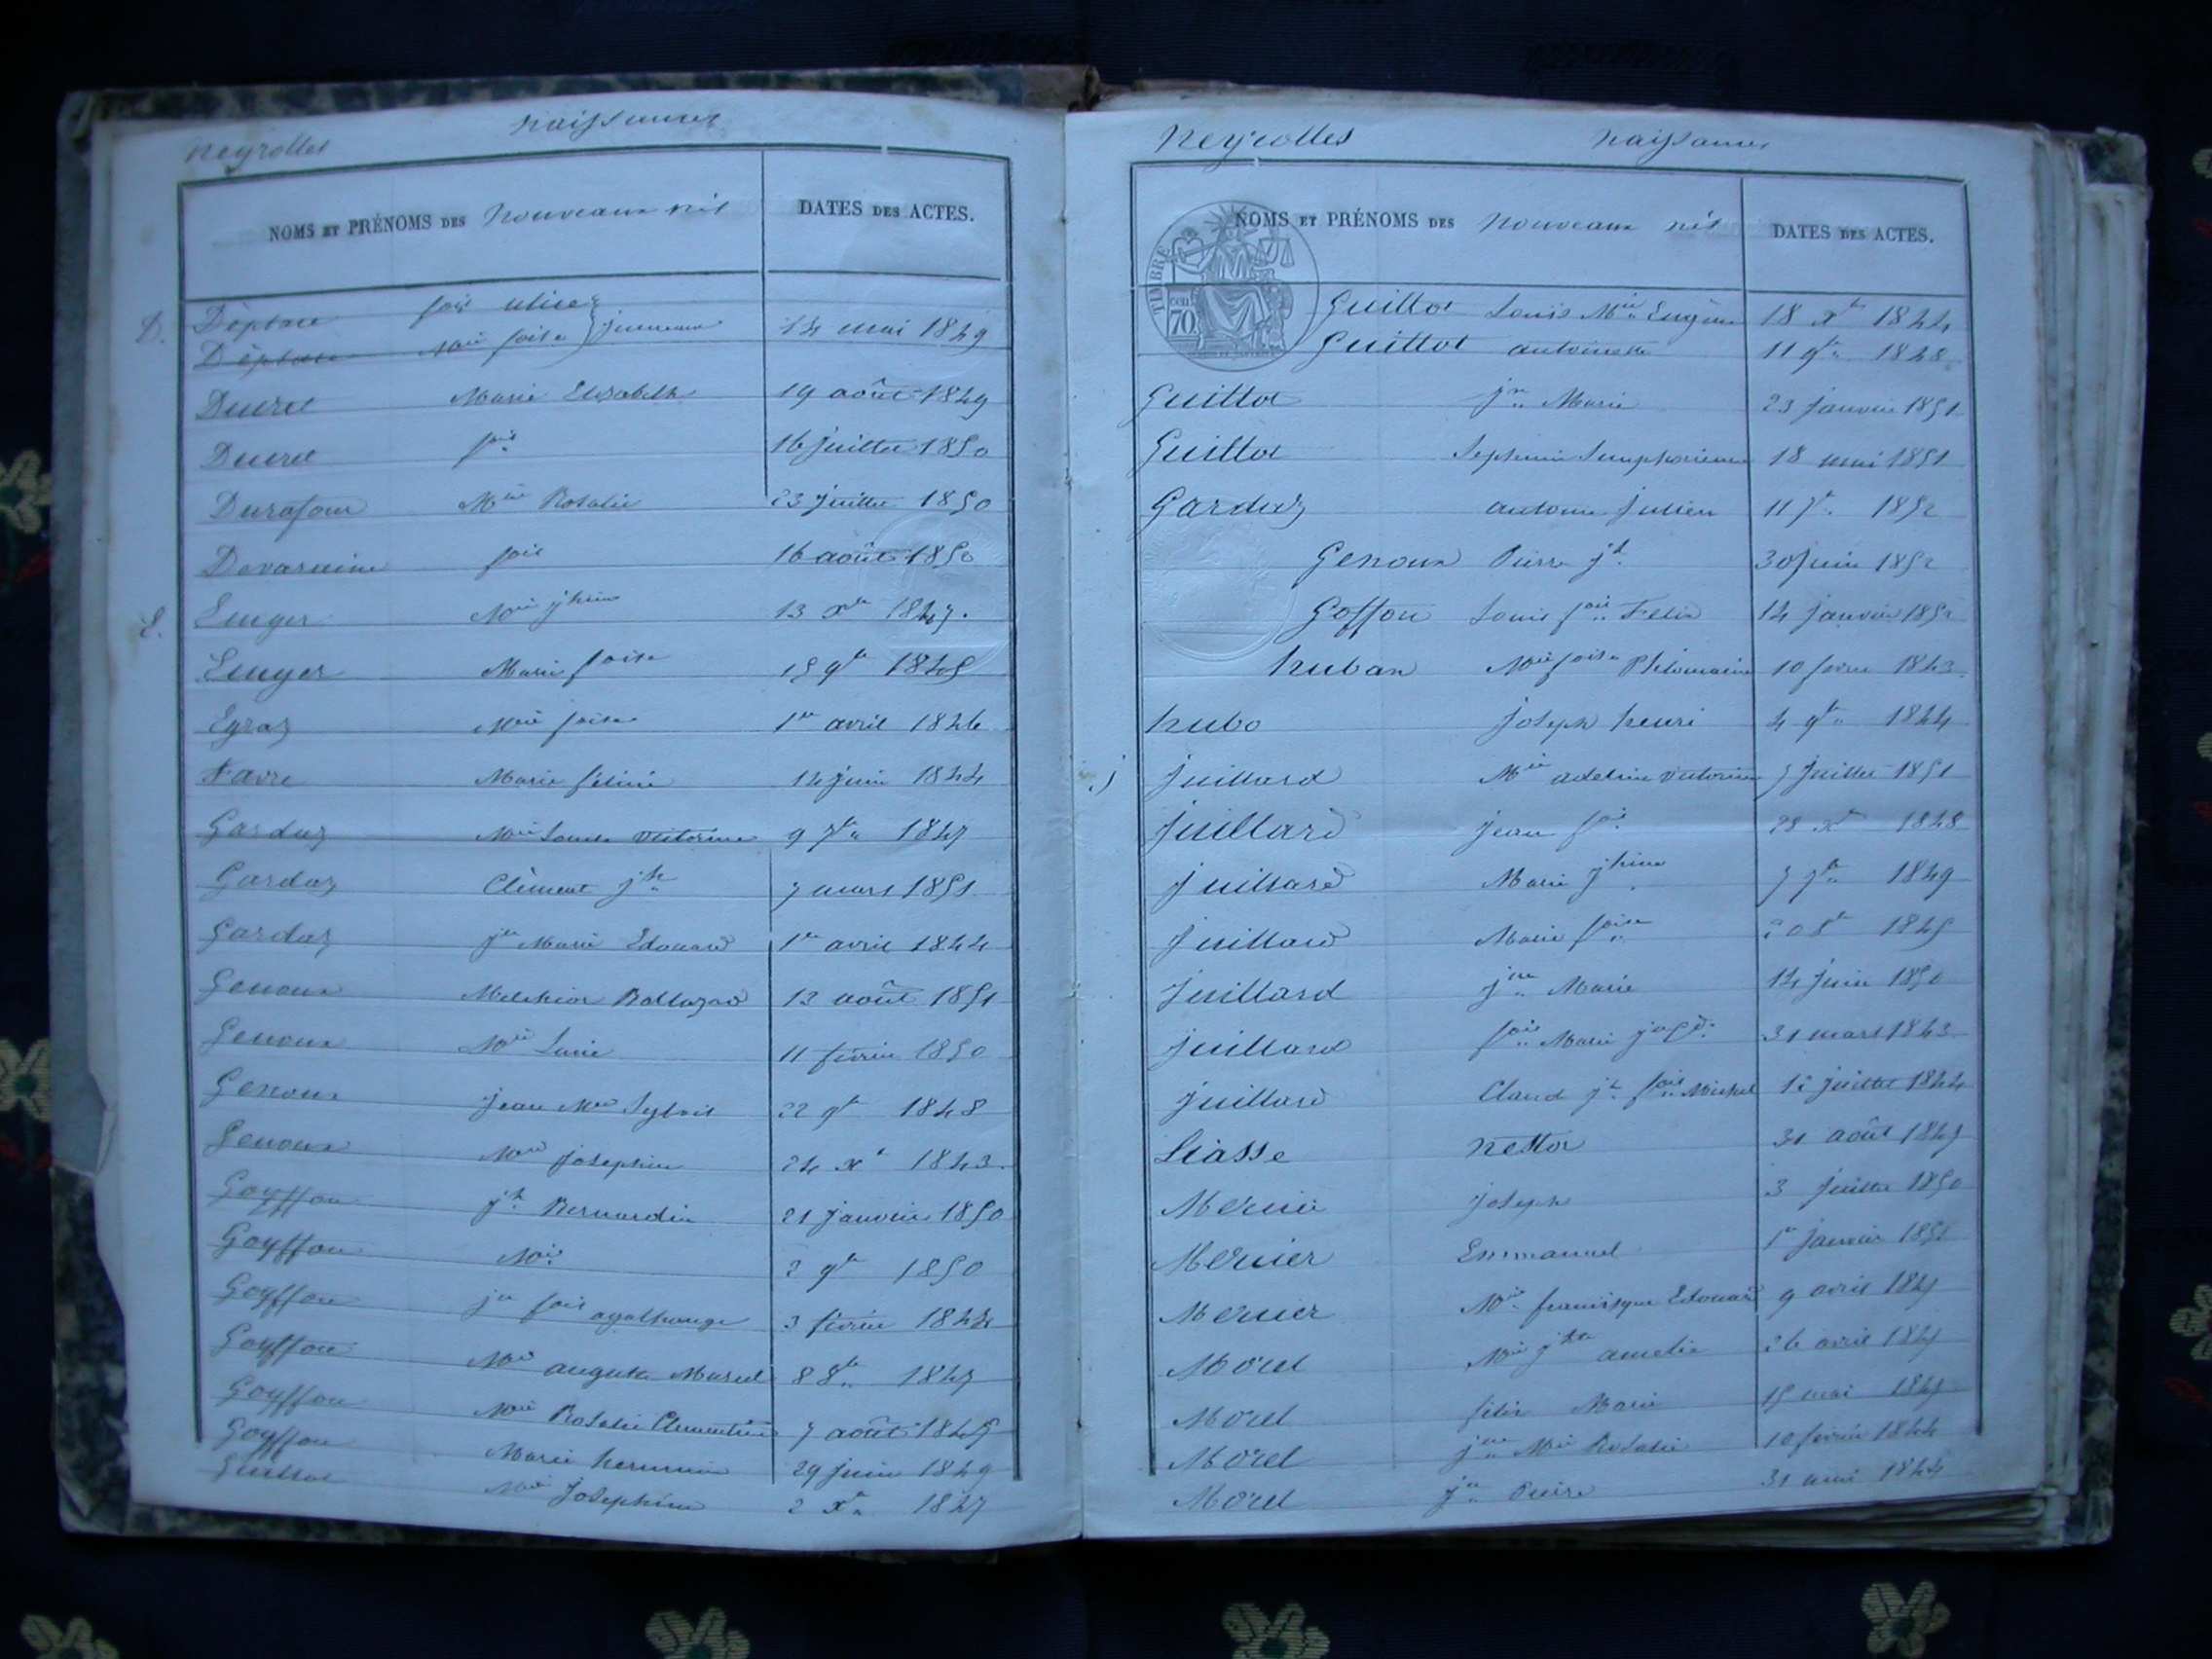 Neyrolles Naissances
NOMS ET PRÉNOMS DES Nouveaux nés DATES DES ACTES.
D. Déplace fois ulisse
Déplace Mie foise jumeaux 14 mai 1849
Ducret Marie Elisabeth 19 août 1849
Ducret fois 16 juillet 1850
Durafour Mie Rosalie 23 juillet 1850
fois 16 août 1850
E. Emyer Mie jhine 13 xbre 1847.
Emyer Marie foise 15 9bre 1845
Egraz Mie foise 1er avril 1846
Favre Marie félicie 14 juin 1844
Garduz Mie Louise victorine 9 7bre 1847
Garduz Clément jh 7 mars 1851
Garduz jn Marie Edouard 1er avril 1844
Genoux Melchior Baltazard 13 août 1851
Genoux Mie Lucie 11 février 1850
Genoux Jean Mie Sylvis 22 9bre 1848
Genoux Mie Josephine 24 xbre 1843
Goyffon jh Bernardin 21 janvier 1850
Goyffon Mie 3 9bre 1850
Goyffon jn fois agathange 3 février 1844
Goyffon Mie auguste Marcel 8 8bre 1847
Goyffon Mie Rosalie Clementine 7 août 1845
Goyffon Marie hermine 29 juin 1849
Guillot Mie Josephine 2 xbre 1847
Neyrolles Naissances
NOMS ET PRÉNOMS DES Nouveaux nés DATES DES ACTES.
TIMBRE
70
Guillot Louis Mie Eugène 18 xbre 1844
Guillot antoinette 11 9bre 1848
Guillot jn Marie 23 janvier 1851
Guillot Sephirin Simphorien 18 mai 1851
Garduz antoine Julien 11 7bre 1852
Genoux Pierre jh 30 juin 1852
Goffon Louis fois Felix 14 janvier 1852
huban Mie foise Philomène 10 février 1843
hubo joseph henri 4 9bre 1844
J Juillard Mie adeline victorine 7 juillet 1851
Juillard jean fois 28 xbre 1848
Juillard Marie jhine 7 7bre 1849
Juillard Marie foise 20 8bre 1845
Juillard jne Marie 14 juin 1850
Juillard fois Marie 31 mars 1843
Juillard Claud jh fois Michel 12 juillet 1844
Liasse Nestor 31 août 1849
Mercier Joseph 3 juillet 1850
Mercier Emmanuel 1er janvier 1852
Mercier Mie francisque Edouard 9 avril 1847
Morel Mie jhte amelie 26 avril 1847
Morel félix Marie 15 mai 1847
Morel jne Mie Rosalie 10 février 1844
Morel jn Pierre 31 mai 1844